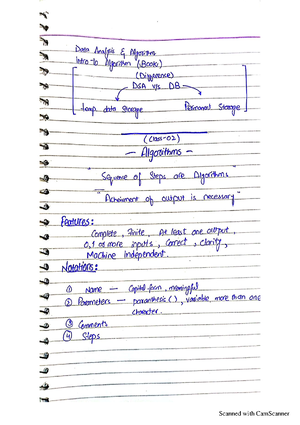 Data Analysis & Algorithm
Intro to Algorithm (Books)
(Difference)
DSA v/s DB
temp data storage Permanent Storage
(Class-02)
- Algorithms -
" Sequence of Steps are Algorithms "
" Achievment of output is necessary "
Features:
Complete, Finite, At least one output
0,1 or more inputs, Correct, clarity,
Machine Independent.
Notations:
① Name — Capital form, meaningful
② Parameters — paranthesis ( ), variable, more than one
character.
③ Comments
④ Steps
Scanned with CamScanner